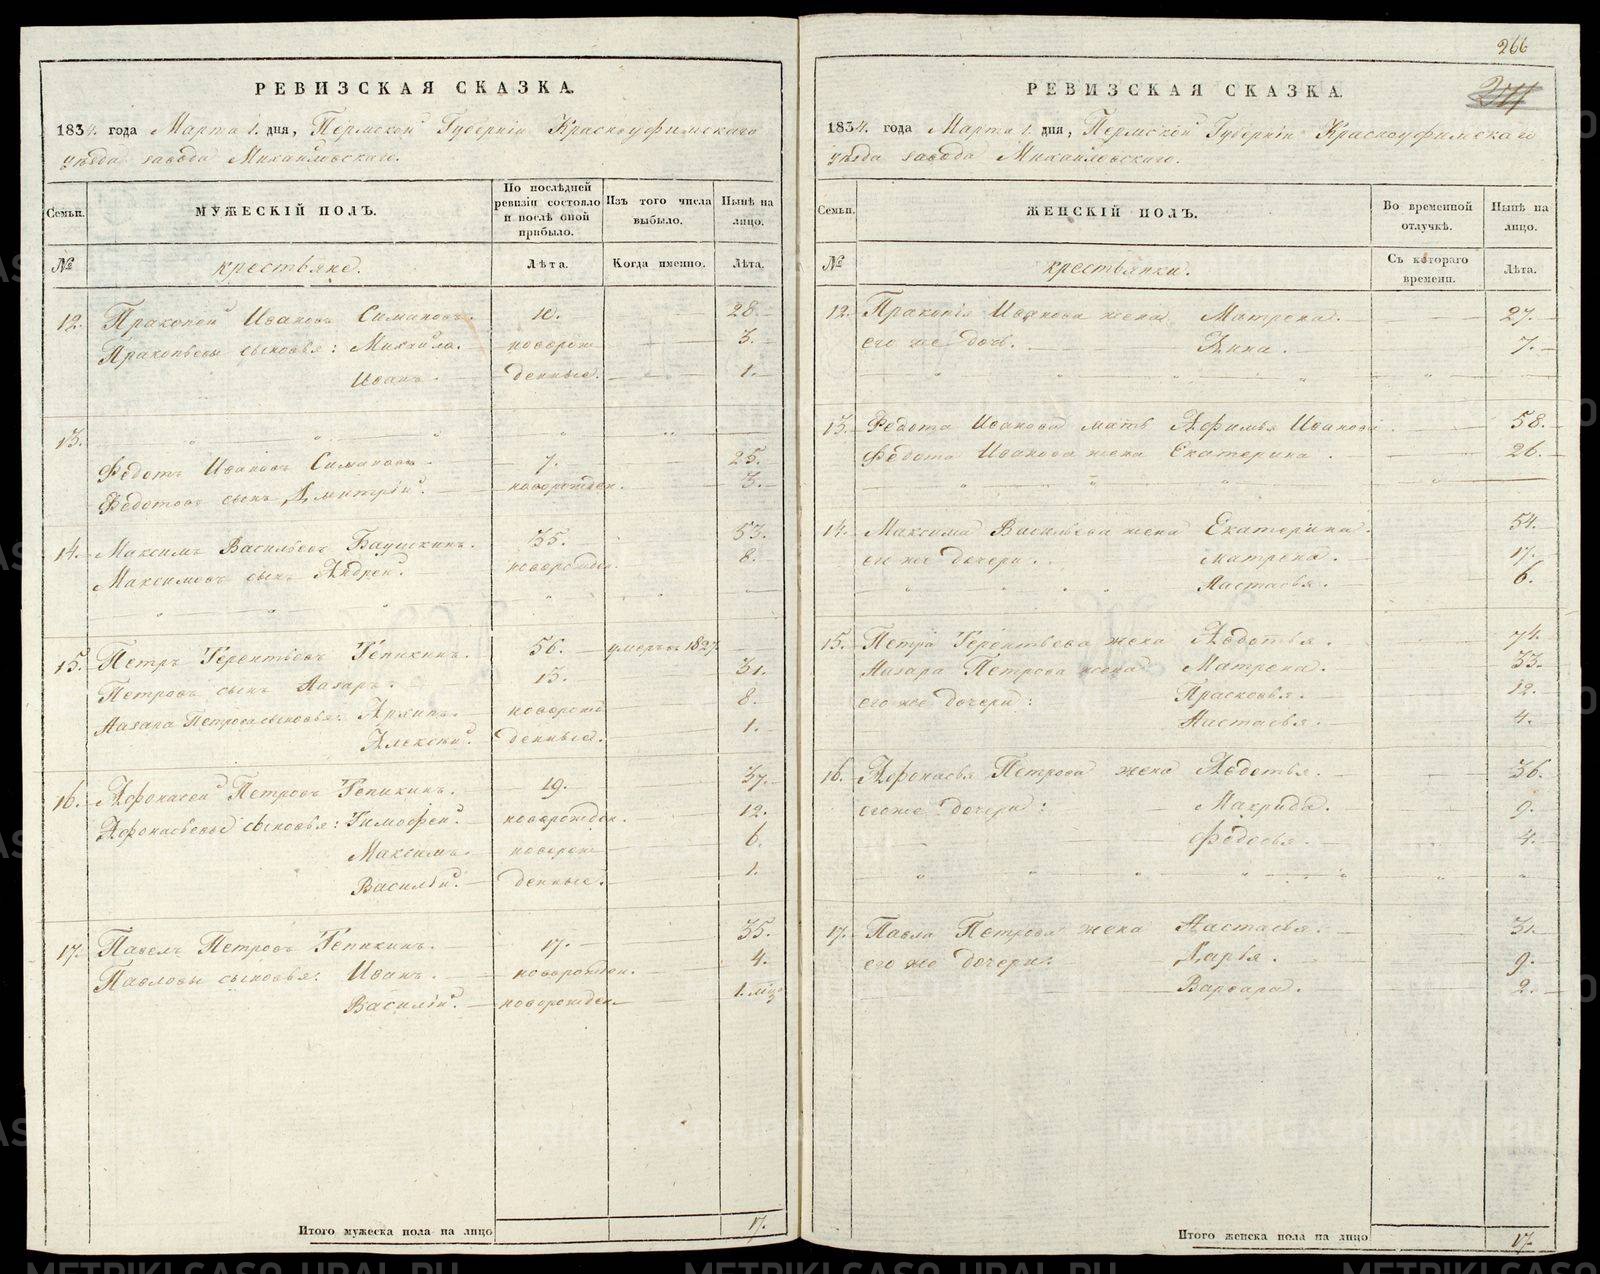 РЕВИЗСКАЯ СКАЗКА.
1834. года Марта 1. дня, Пермской Губернiи Красноуфимскаго
уѣзда завода Михайловскаго.
Семьи.
МУЖЕСКIЙ ПОЛЪ.
По послѣдней ревизiи состояло и послѣ оной прибыло.
Изъ того числа выбыло.
Нынѣ на лицо.
№ крестьяне. Лѣта. Когда именно. Лѣта.
12. Пракопей Ивановъ Симановъ. 10. 28.
Пракопьевы сыновья: Михайла. новорож 3.
Иванъ. денные. 1.
13.
Федотъ Ивановъ Симановъ. 7. 25.
Федотовъ сынъ Дмитрiй. новорожден. 3.
14. Максимъ Васильевъ Баушкинъ. 35. 53.
Максимовъ сынъ Андрей. новорожден. 8.
15. Петръ Терентьевъ Тепикинъ. 56. умеръ въ 1827.
Петровъ сынъ Назаръ. 13. 31.
Назара Петрова сыновья: Архипъ. новорож 8.
Алексей. денные. 1.
16. Афонасей Петровъ Тепикинъ. 19. 37.
Афонасьевы сыновья: Тимофей. новорожден. 12.
Максимъ. новорож 6.
Василiй. денные. 1.
17. Павелъ Петровъ Тепикинъ. 17. 35.
Павловы сыновья: Иванъ. новорожден. 4.
Василiй. новорожден. 1.
Итого мужеска пола на лицо 17.
266
РЕВИЗСКАЯ СКАЗКА.
1834. года Марта 1. дня, Пермской Губернiи Красноуфимскаго
уѣзда завода Михайловскаго.
Семьи.
ЖЕНСКIЙ ПОЛЪ.
Во временной отлучкѣ.
Нынѣ на лицо.
№ крестьянки. Съ котораго времени. Лѣта.
12. Пракопiя Иванова жена Матрена. 27.
его же дочь. Анна. 7.
13. Федота Иванова мать Афимья Иванова. 58.
Федота Иванова жена Екатерина. 26.
14. Максима Васильева жена Екатерина. 54.
его же дочери. Матрена. 17.
Настасья. 6.
15. Петра Терентьева жена Авдотья. 74.
Назара Петрова жена Матрена. 33.
его же дочери: Прасковья. 12.
Настасья. 4.
16. Афонасья Петрова жена Авдотья. 36.
его же дочери: Макрида. 9.
Федосья. 4.
17. Павла Петрова жена Настасья. 31.
его же дочери: Дарья. 9.
Варвара. 2.
Итого женска пола на лицо 17.
METRIKI.GASO-URAL.RU